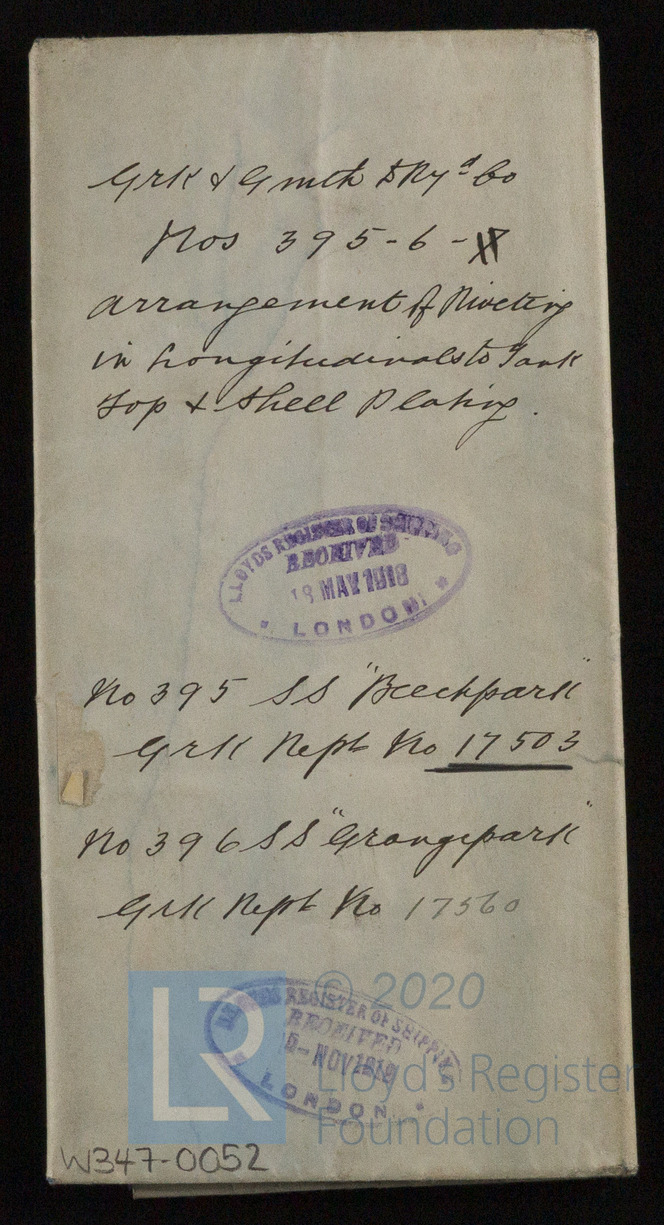 Grk & Gmth DkYd Co
Nos 395-6-7
Arrangement of Riveting
in Longitudinals to Tank
Top & Shell Plating.
LLOYDS REGISTER OF SHIPPING
RECEIVED
MAY 1918
* LONDON *
No 395 SS "Beechpark"
Grk Rept No 17503
No 396 SS "Grangepark"
Grk Rept No 17560
REGISTER OF SHIPPING
RECEIVED
NOV 1918
LONDON
LR
© 2020
Lloyd's Register
Foundation
W347-0052